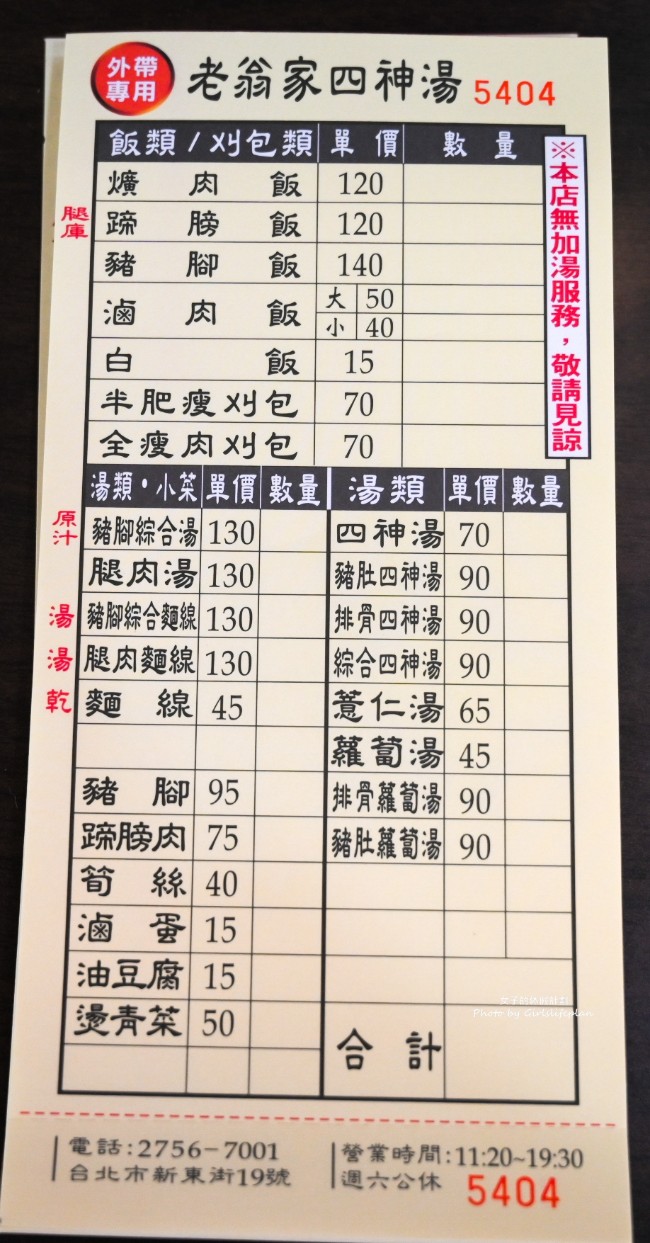 外帶專用 老翁家四神湯 5404
飯類/刈包類 單價 數量
※本店無加湯服務，敬請見諒
爌肉飯 120
腿庫 蹄膀飯 120
豬腳飯 140
滷肉飯 大 50
小 40
白飯 15
半肥瘦刈包 70
全瘦肉刈包 70
湯類・小菜 單價 數量 湯類 單價 數量
原汁 豬腳綜合湯 130 四神湯 70
腿肉湯 130 豬肚四神湯 90
湯 豬腳綜合麵線 130 排骨四神湯 90
湯 腿肉麵線 130 綜合四神湯 90
乾 麵線 45 薏仁湯 65
蘿蔔湯 45
豬腳 95 排骨蘿蔔湯 90
蹄膀肉 75 豬肚蘿蔔湯 90
筍絲 40
滷蛋 15
油豆腐 15
燙青菜 50
合計
Photo by Girlslifeplan
電話:2756-7001 營業時間:11:20~19:30
台北市新東街19號 週六公休 5404